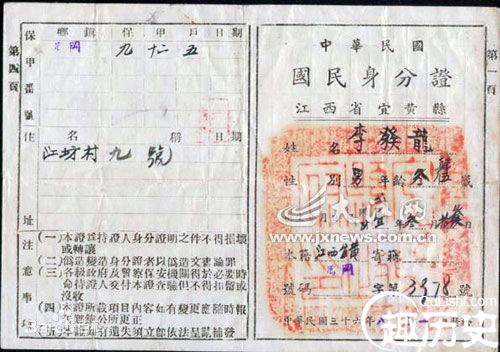 第一頁
中華民國
國民身分證
江西省宜黃縣
姓名 李發龍
性別 男 年齡 叁 歲
本籍 江西 寄籍
鳳岡
號碼 字第 3378 號
中華民國三十六年
第四頁
保甲番號
鄉鎮 保 甲 戶 日期
鳳岡 九 十二 五
住址
名稱 日期
江坊村九號
注意事項
(一)本證爲持證人身分證明之件不得損壞或轉讓
(二)僞造變造身分證者以僞造文書論罪
(三)各級政府及警察保安機關得於必要時命持證人交付本證查驗但不得扣留或沒收
(四)本證所載項目內容如有變更應隨時報
公所更正
本證如有遺失須立即依法呈請補發
大江網
www.jxnews.com.cn
QuLishi.com
趣历史